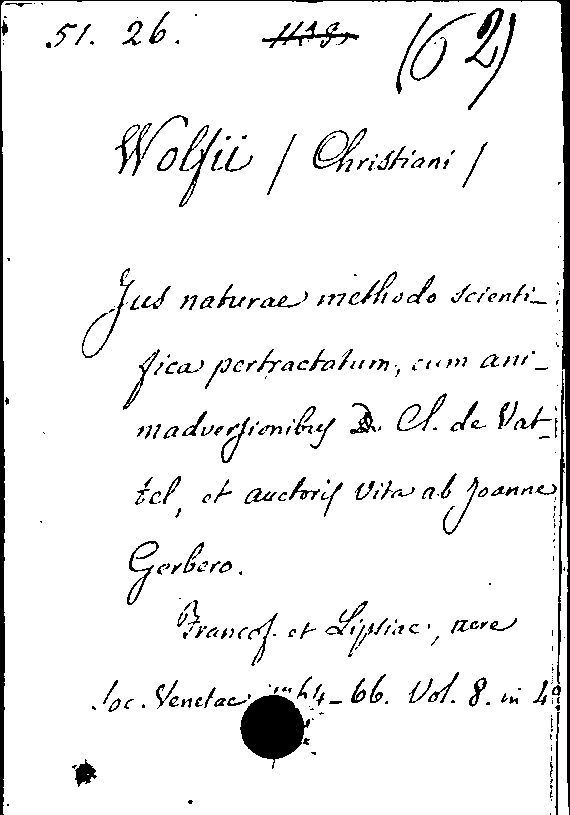 51. 26. 1138. (62)
Wolfii / Christiani /
Jus naturae methodo scienti-
fica pertractatum, cum ani-
madversionibus D. Cl. de Vat-
tel, et auctoris vita ab Joanne
Gerbero.
Francof. et Lipsiae, vere
loc. Venetae 64-66. Vol. 8. in 4º